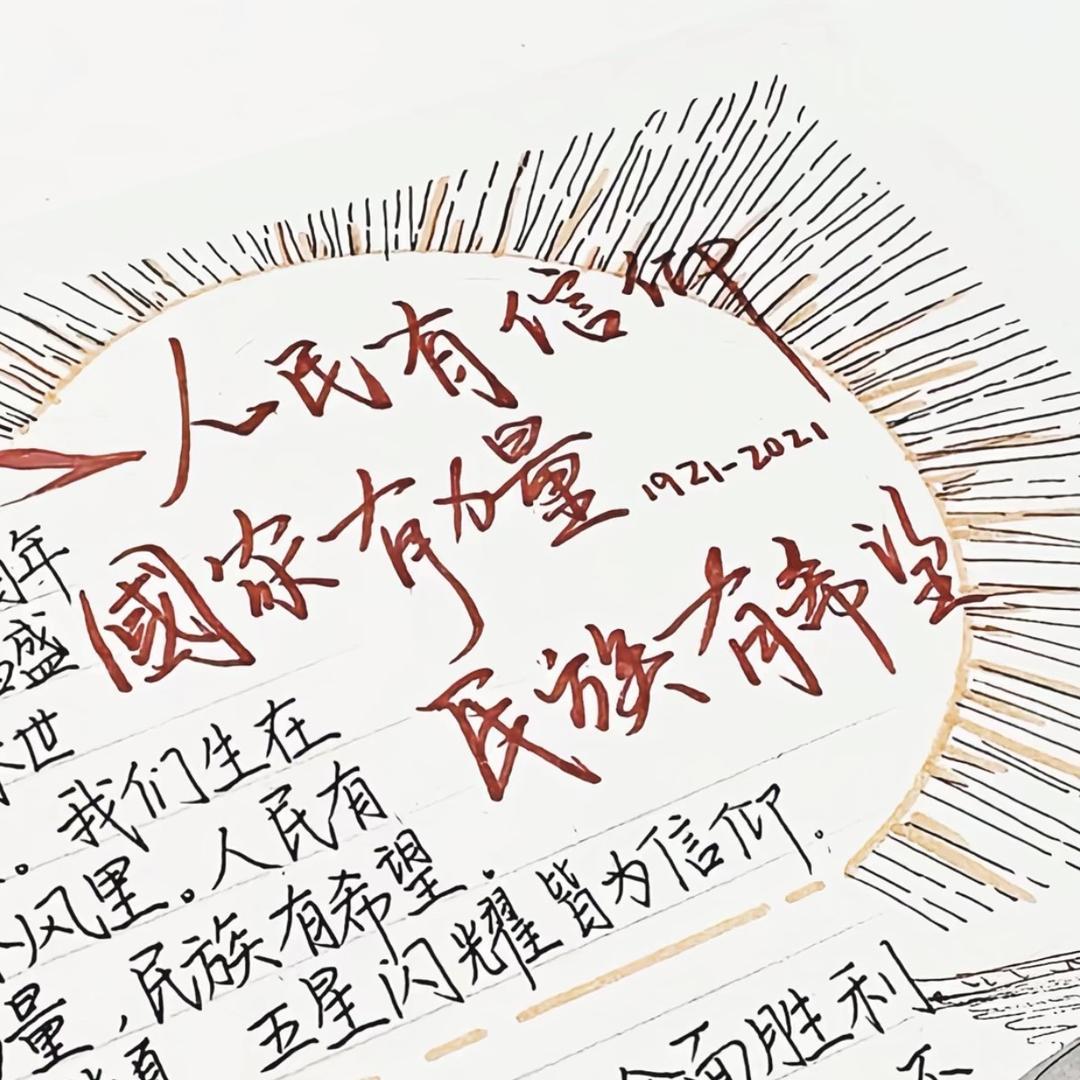 人民有信仰
國家有力量
1921-2021
民族有希望
周年
盛
世
。我们生在
风里。人民有
量，民族有希望。
五星闪耀皆为信仰.
面胜利
不